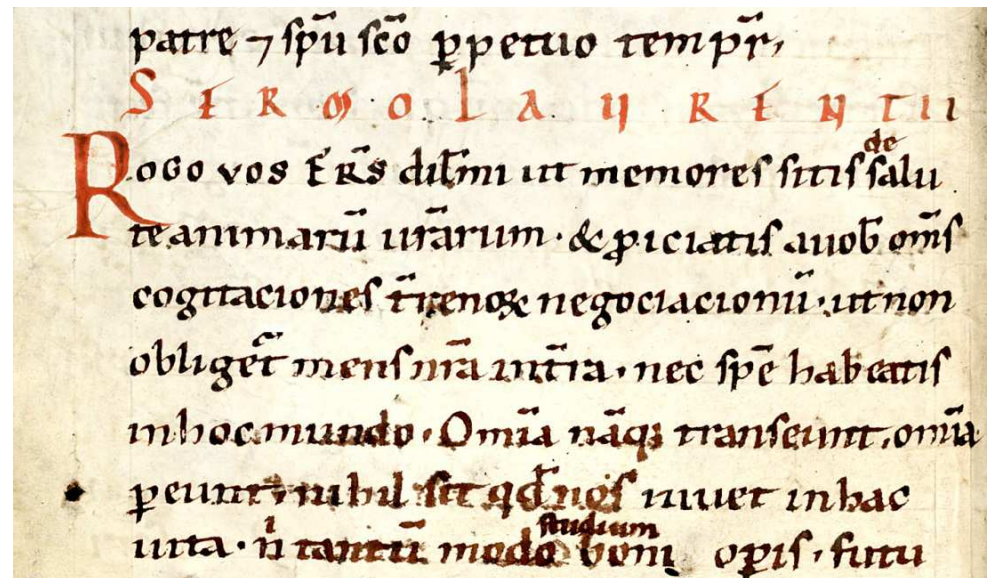 patre ⁊ spū scō ꝑpetuo tempr̄,
SERMO LAURENTII
Rogo vos fr̄s dil̄mi ut memores sitis de salu
te animarū ur̄arum · & ꝓiciatis a uob̄ om̄s
cogitaciones t̄renoꝝ negociacionū · ut non
obliget̄ mens nr̄a in t̄ra · nec spē habeatis
in hoc mundo · Om̄ia nāqꝫ transeunt, om̄ia
ꝑeunt, nihil sit qd̄ nos iuuet in hac
uita · n̍ tantū modo studium boni oꝑis · futu